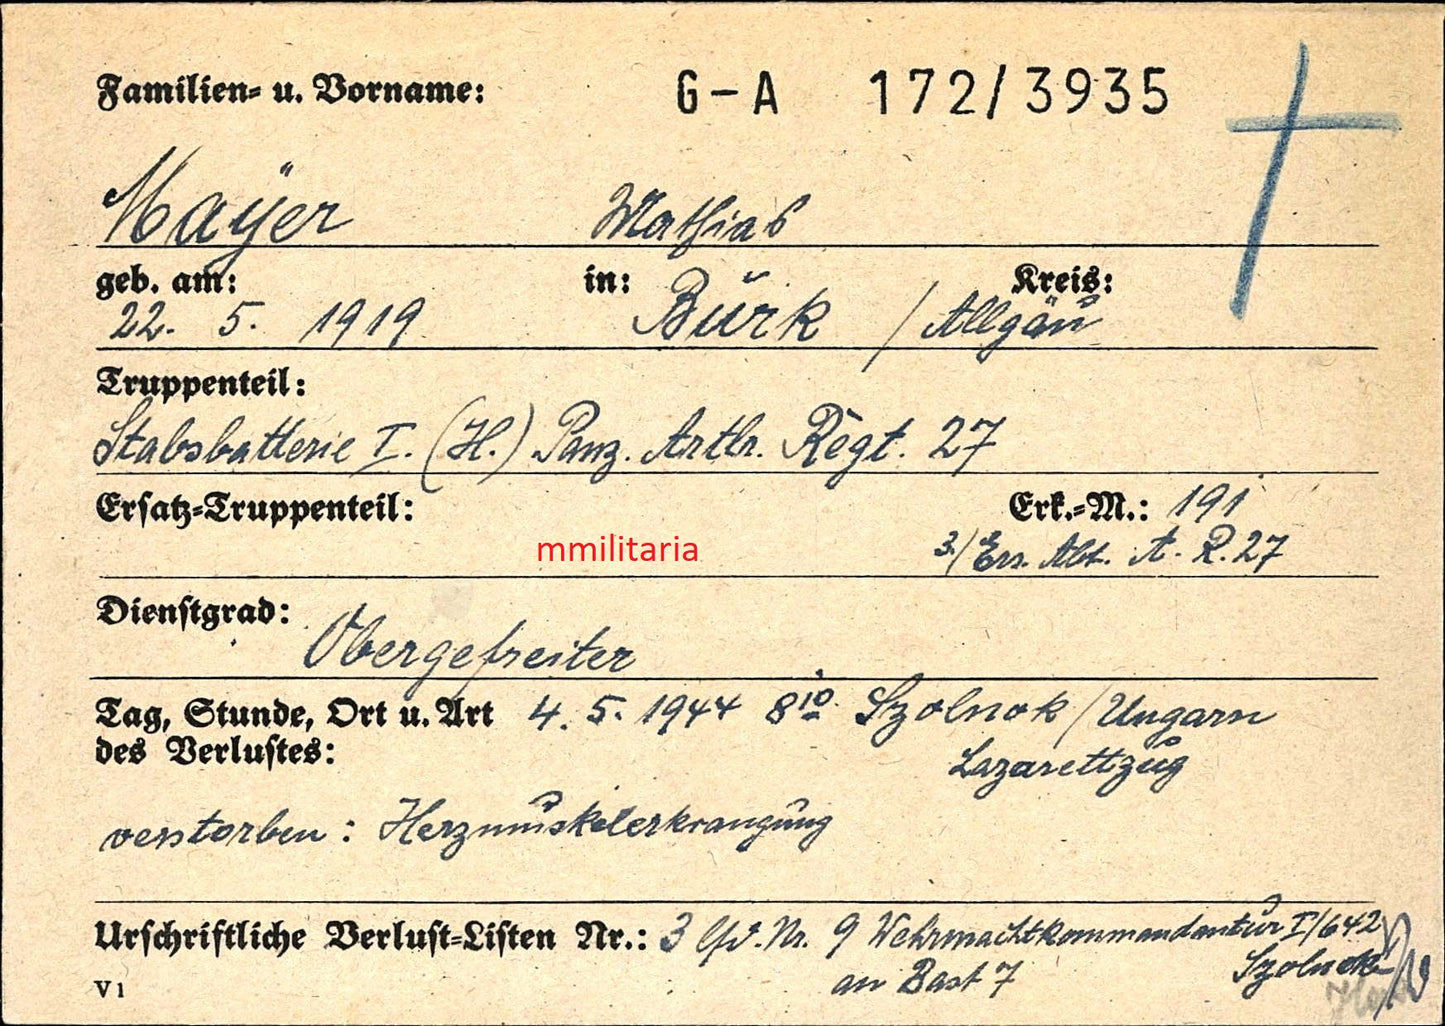 Familien- u. Vorname: G-A 172/3935
Mayer Mathias
geb. am: in: Kreis:
22. 5. 1919 Burk / Allgäu
Truppenteil:
Stabsbatterie I. (H.) Panz. Artlr. Regt. 27
Ersatz-Truppenteil: Erk.-M.: 191
mmilitaria 3./Ers. Abt. A. R. 27
Dienstgrad:
Obergefreiter
Tag, Stunde, Ort u. Art 4. 5. 1944 8 10 Szolnok / Ungarn
des Verlustes: Lazarettzug
verstorben: Herzmuskelerkrangung
Urschriftliche Verlust-Listen Nr.: 3 lfd. Nr. 9 Wehrmachtkommandantur I/642
an Bast 7 Szolnok
V 1